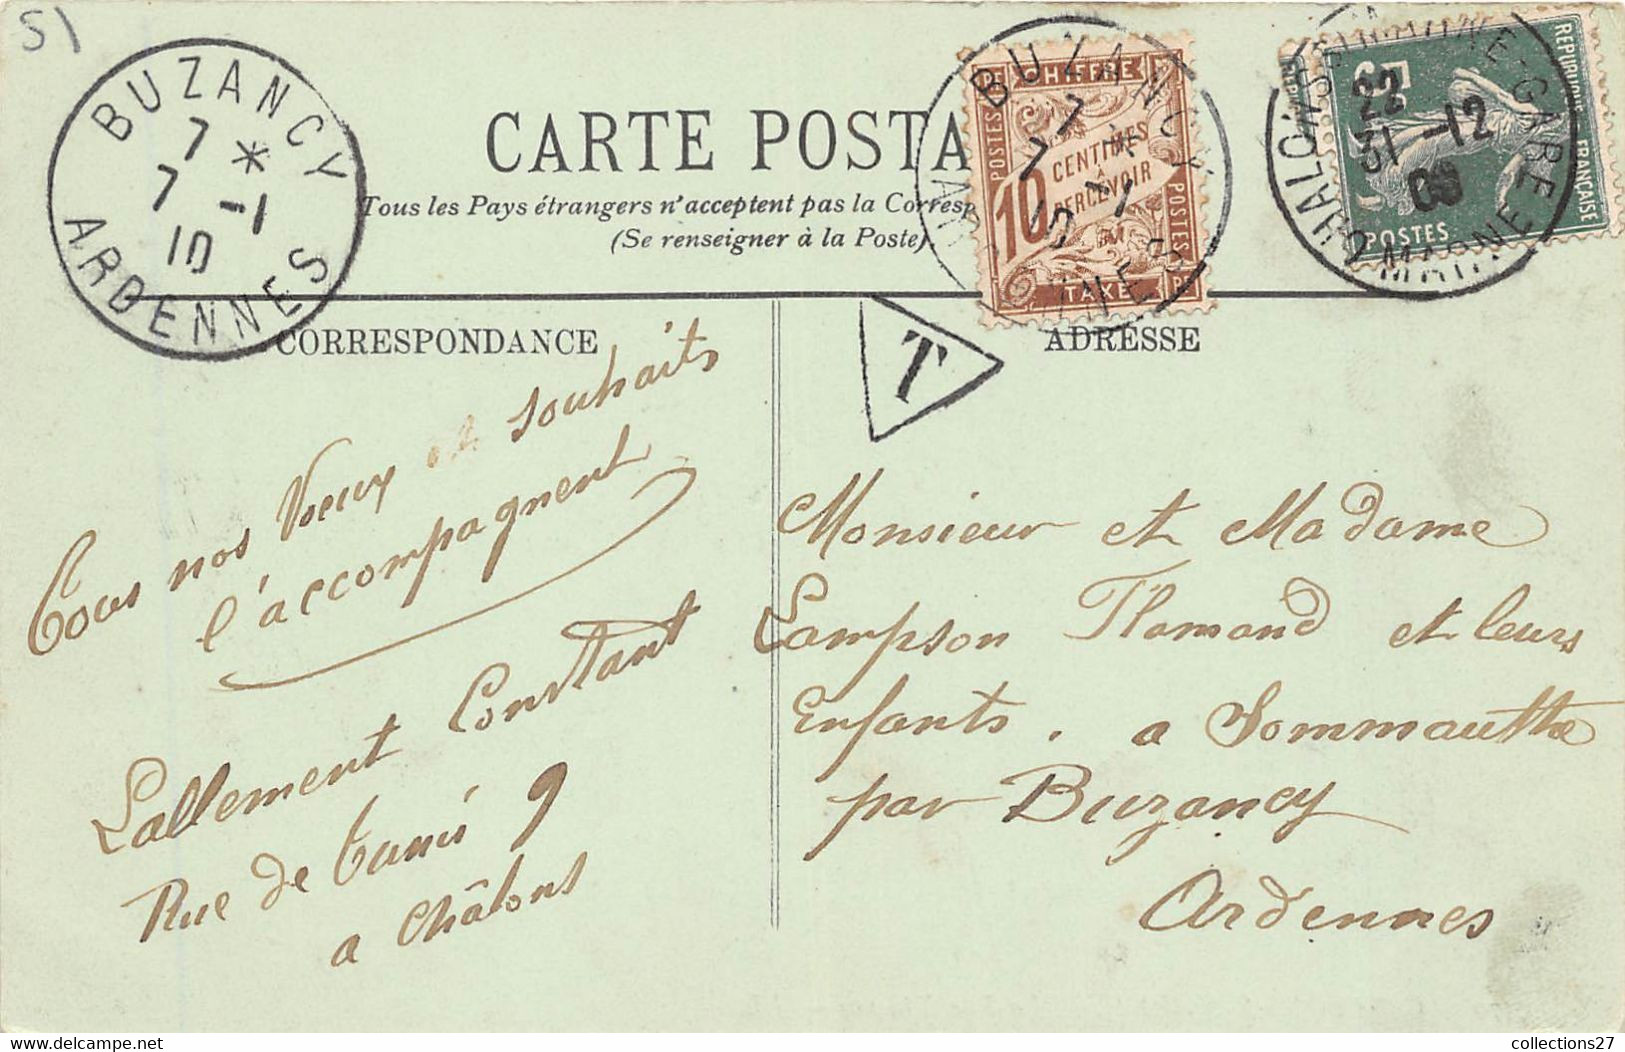 51
BUZANCY
7 *
7 -1
10
ARDENNES
CARTE POSTA
Tous les Pays étrangers n'acceptent pas la Corresp
(Se renseigner à la Poste)
CHIFFRE
POSTES
10 CENTIMES
À
PERCEVOIR
POSTES
TAXE
BUZANCY
7 *
7 -1
10
REPUBLIQUE FRANÇAISE
POSTES
CHALONS-S-MARNE-GARE
22
31 -12
09
MARNE
T
CORRESPONDANCE
Tous nos Voeux et souhaits
l'accompagnent
Lallement Constant
Rue de 9
a Châlons
ADRESSE
Monsieur et Madame
Lampson Flamand et leurs
Enfants. a Sommauthe
par Buzancy
Ardennes
collections27